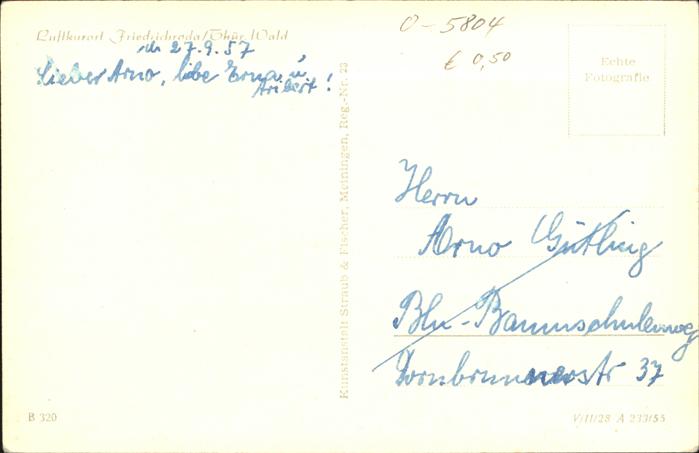 Luftkurort Friedrichroda/Thür. Wald
d. 27.9.57
Lieber Arno, liebe Erna u.
Aribert!
Kunstanstalt Straub & Fischer, Meiningen, Reg.-Nr. 23
O-5804
€ 0,50
Echte
Fotografie
Herrn
Arno Gütling
Bln-Baumschulenweg
Dornbrunnerstr 37
B 320
V/11/28 A 233/55